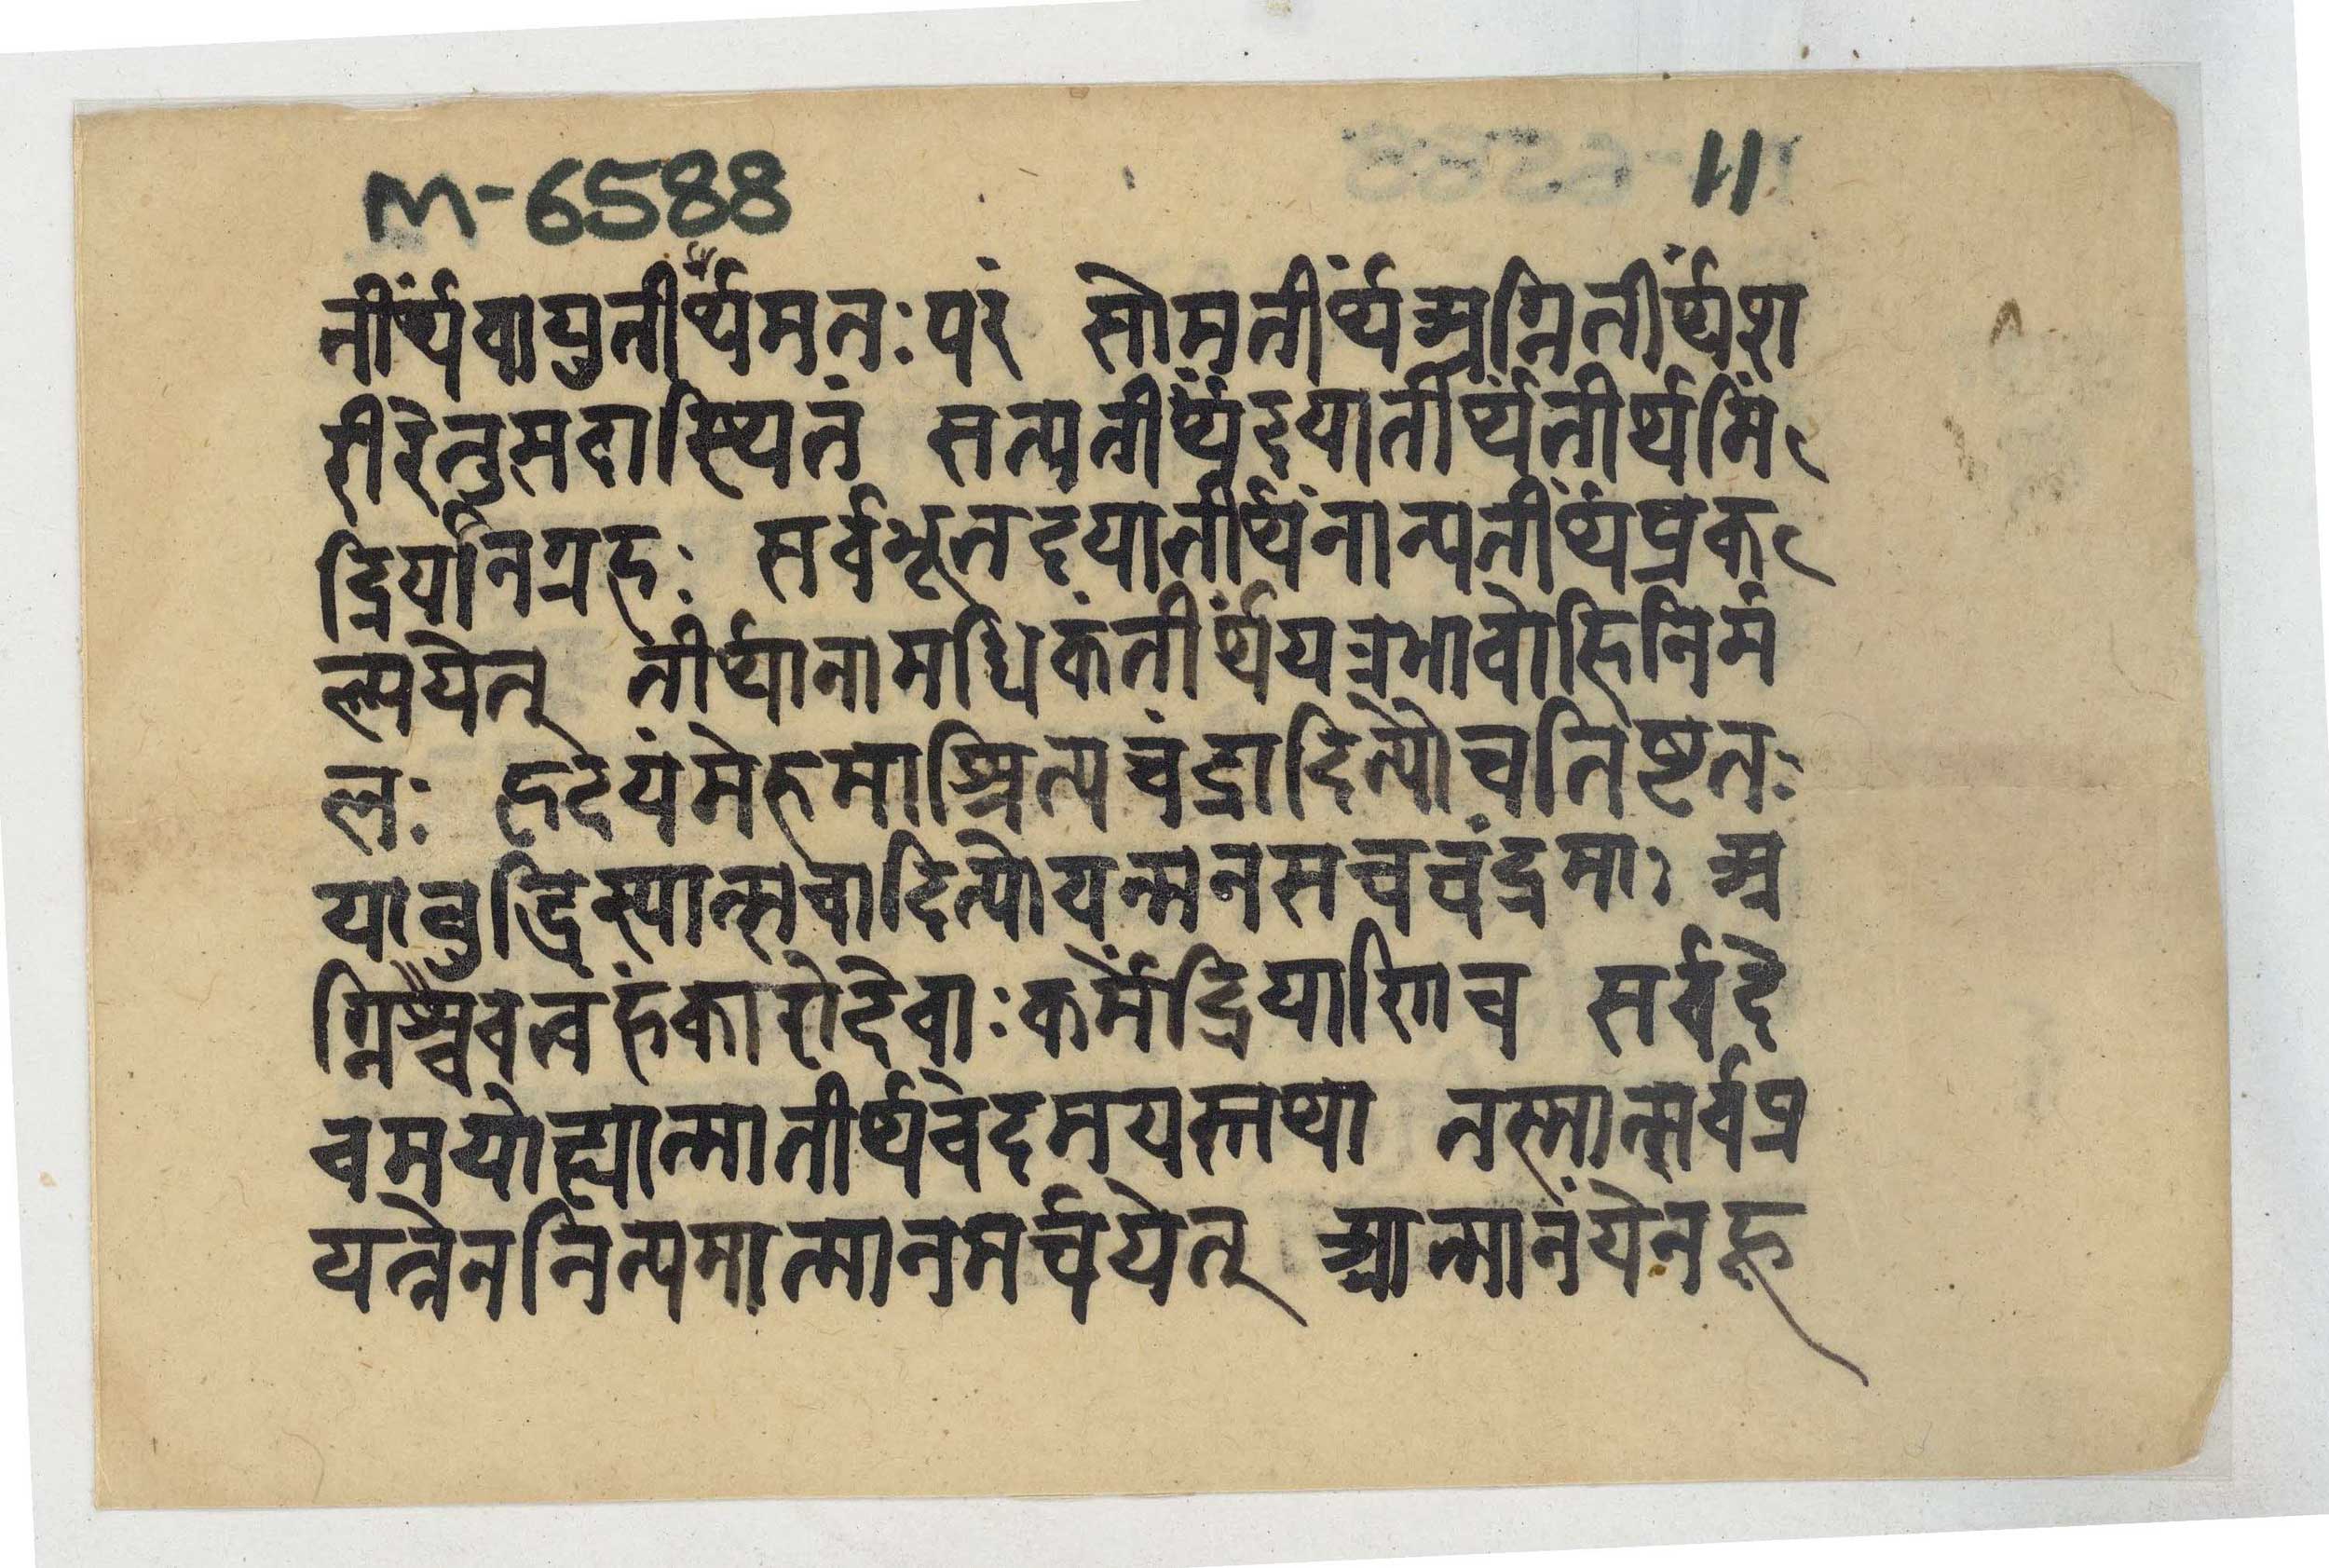 M-6588 11
तीर्थंवायुतीर्थमतःपरं सोमतीर्थंअग्नितीर्थंश
रीरेतुमदास्थितं सत्यतीर्थंदयातीर्थंतीर्थमिं
द्रियनिग्रहः सर्वभूतदयातीर्थंनान्यतीर्थंप्रक
ल्पयेत् तीर्थानामधिकंतीर्थंयत्रभावोहिनिर्म
लः हृदयंमेरुमाश्रित्यचंद्रादित्यौचतिष्टतः
याबुद्धिस्यात्सचादित्योयन्मनसचचंद्रमाः अ
ग्निश्चैवत्वहंकारोदेवाःकर्मेंद्रियाणिच सर्वदे
वमयोह्यात्मातीर्थवेदमयस्तथा तस्मात्सर्वप्र
यत्नेननित्यमात्मानमर्चयेत् आत्मानंयेनहृ